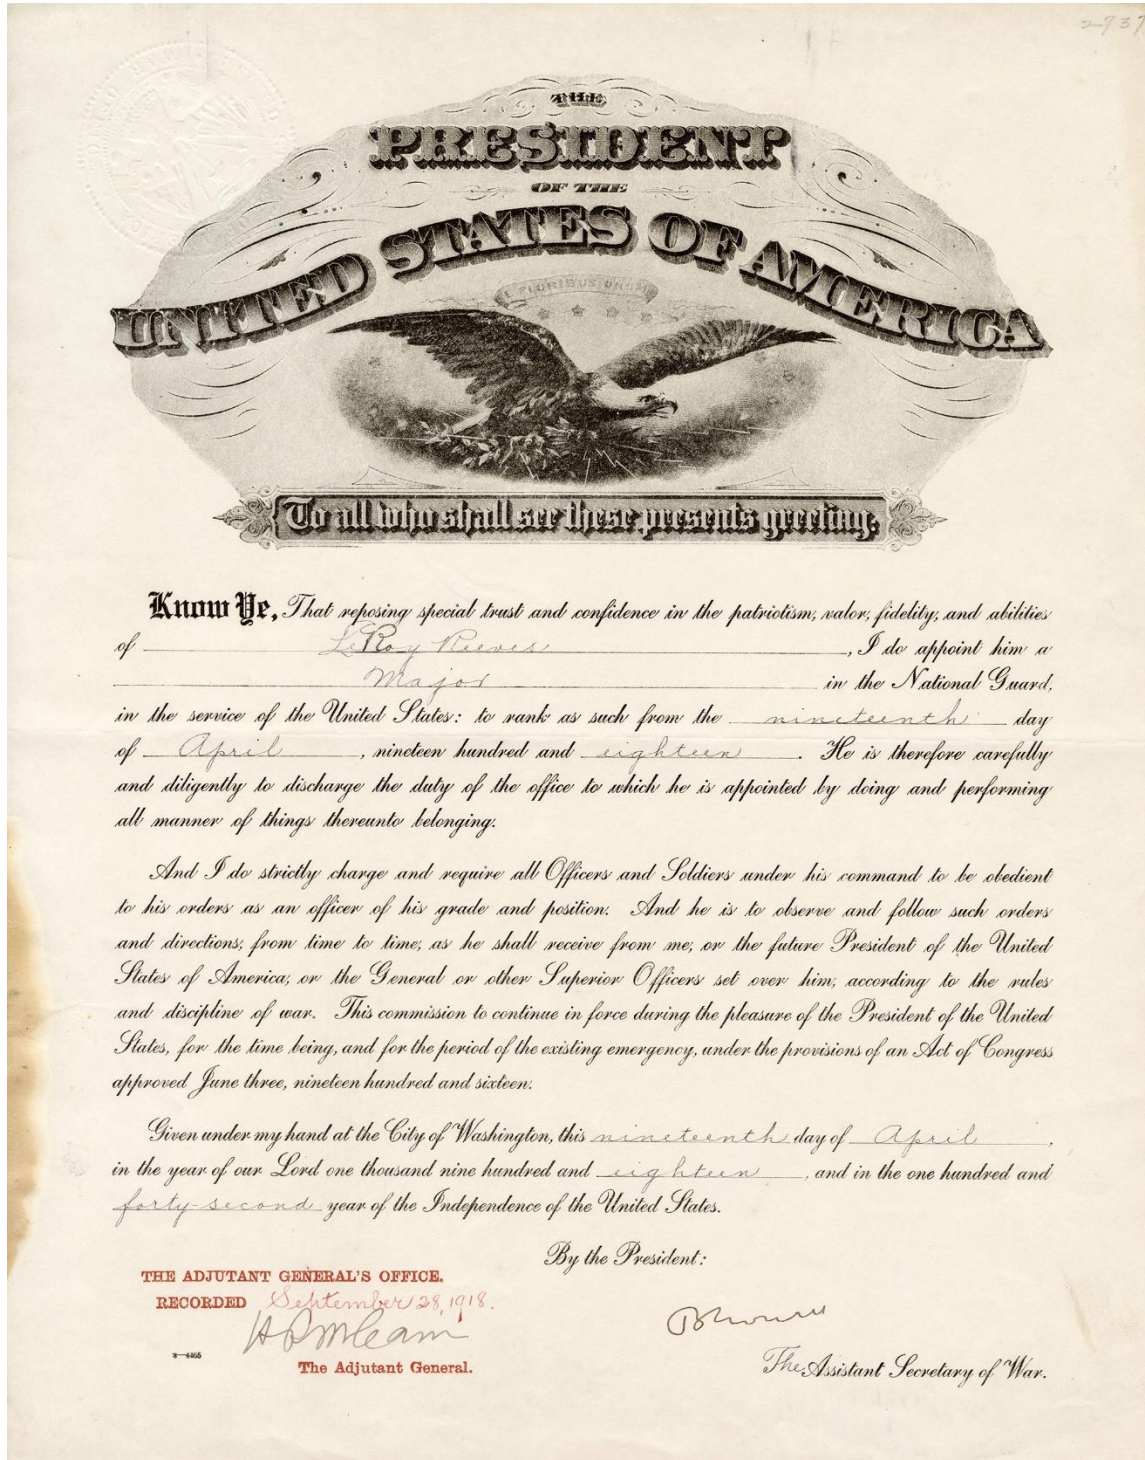 2737
THE
PRESIDENT
OF THE
UNITED STATES OF AMERICA
E PLURIBUS UNUM
To all who shall see these presents greeting:
Know Ye, That reposing special trust and confidence in the patriotism, valor, fidelity, and abilities
of LeRoy Reeves, I do appoint him a
Major in the National Guard,
in the service of the United States: to rank as such from the nineteenth day
of April, nineteen hundred and eighteen. He is therefore carefully
and diligently to discharge the duty of the office to which he is appointed by doing and performing
all manner of things thereunto belonging.
And I do strictly charge and require all Officers and Soldiers under his command to be obedient
to his orders as an officer of his grade and position. And he is to observe and follow such orders
and directions, from time to time, as he shall receive from me, or the future President of the United
States of America, or the General or other Superior Officers set over him, according to the rules
and discipline of war. This commission to continue in force during the pleasure of the President of the United
States, for the time being, and for the period of the existing emergency, under the provisions of an Act of Congress
approved June three, nineteen hundred and sixteen.
Given under my hand at the City of Washington, this nineteenth day of April,
in the year of our Lord one thousand nine hundred and eighteen, and in the one hundred and
forty-second year of the Independence of the United States.
By the President:
THE ADJUTANT GENERAL'S OFFICE.
RECORDED September 28, 1918.
The Adjutant General.
The Assistant Secretary of War.